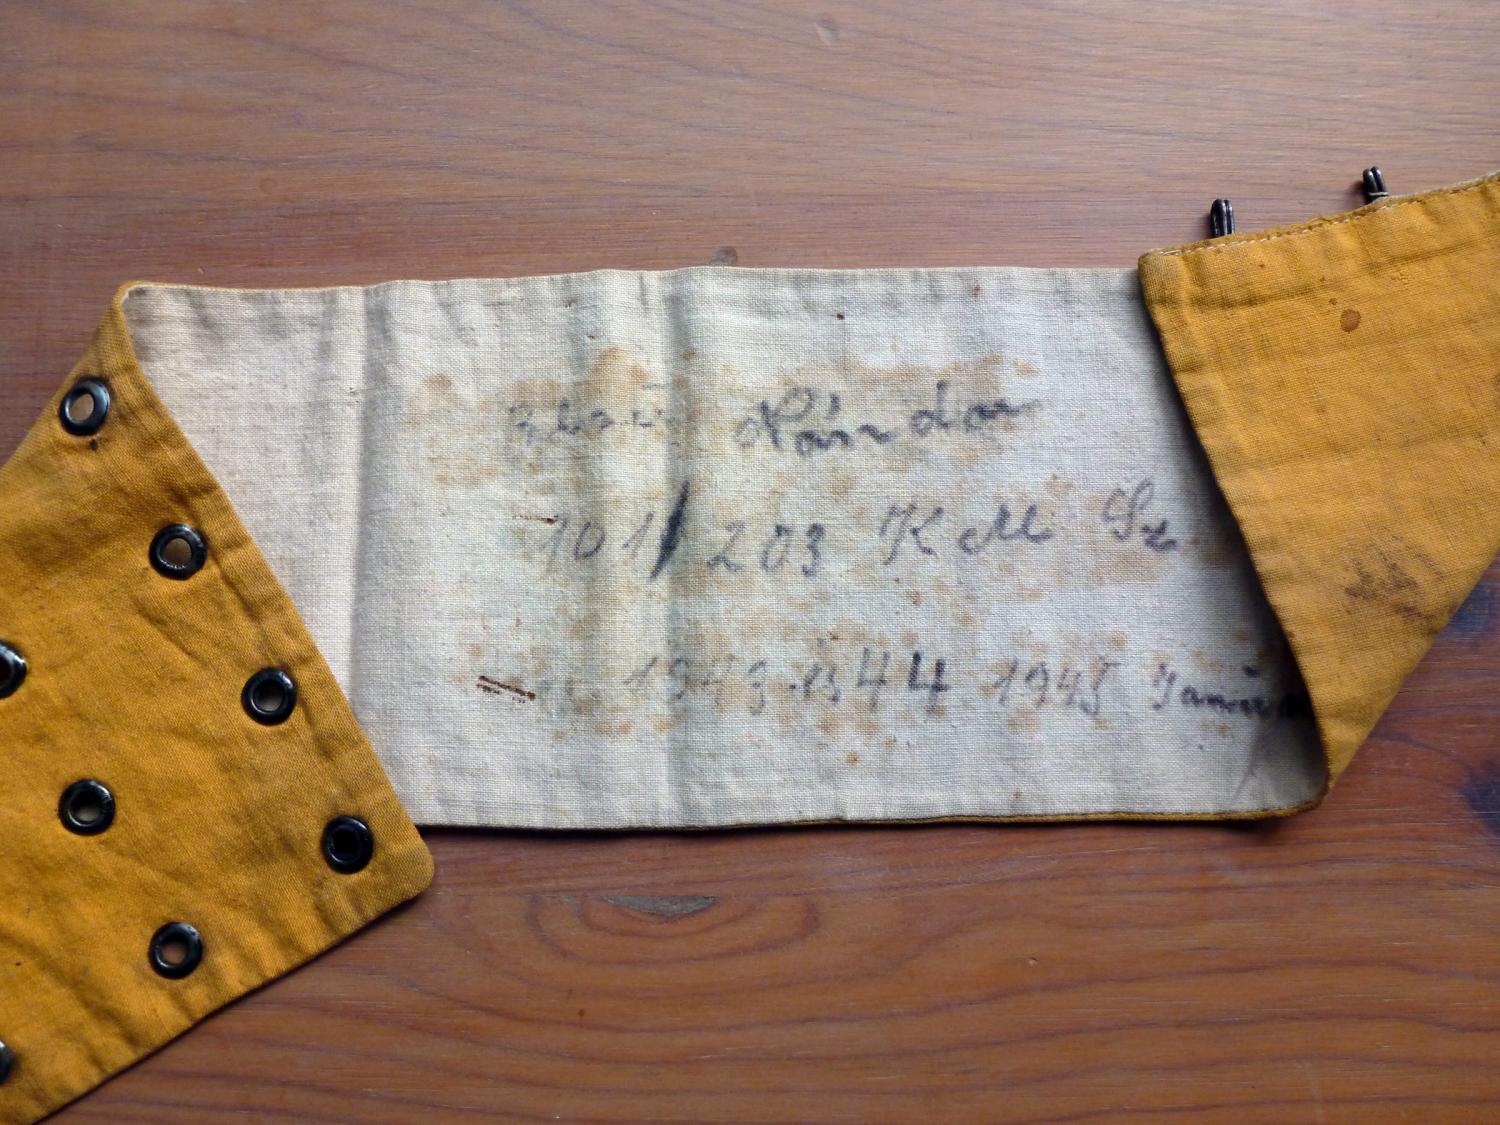 Nándor
101/203 KM Sz
1943 1944 1945 Január